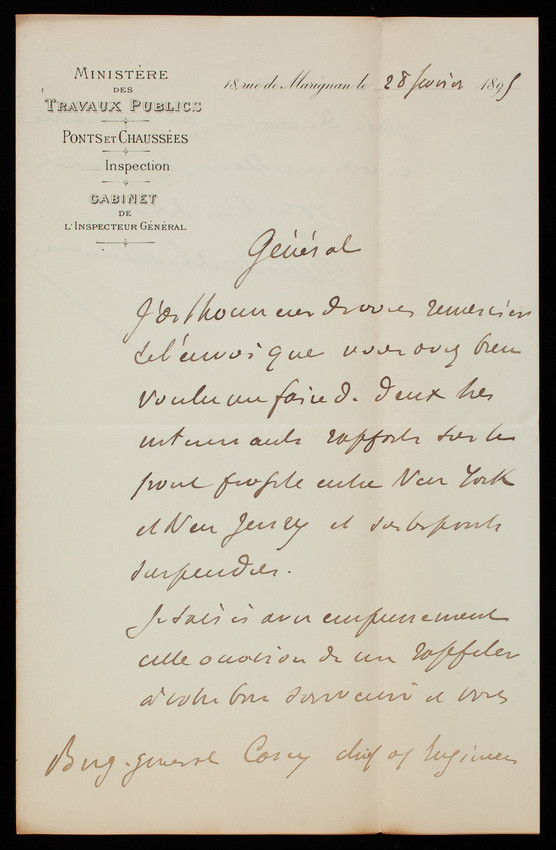 MINISTÈRE
DES
TRAVAUX PUBLICS
PONTS ET CHAUSSÉES
Inspection
CABINET
DE
L'INSPECTEUR GÉNÉRAL
18, rue de Marignan le 28 février 1895
Général
J'ai l'honneur de vous remercier
de l'envoi que vous avez bien
voulu me faire de deux très
intéressants rapports sur le
pont projeté entre New York
et New Jersey et sur les ponts
suspendus.
Je saisis avec empressement
cette occasion de me rappeler
à votre bon souvenir et vous
Brig. general Casey chief of Engineers